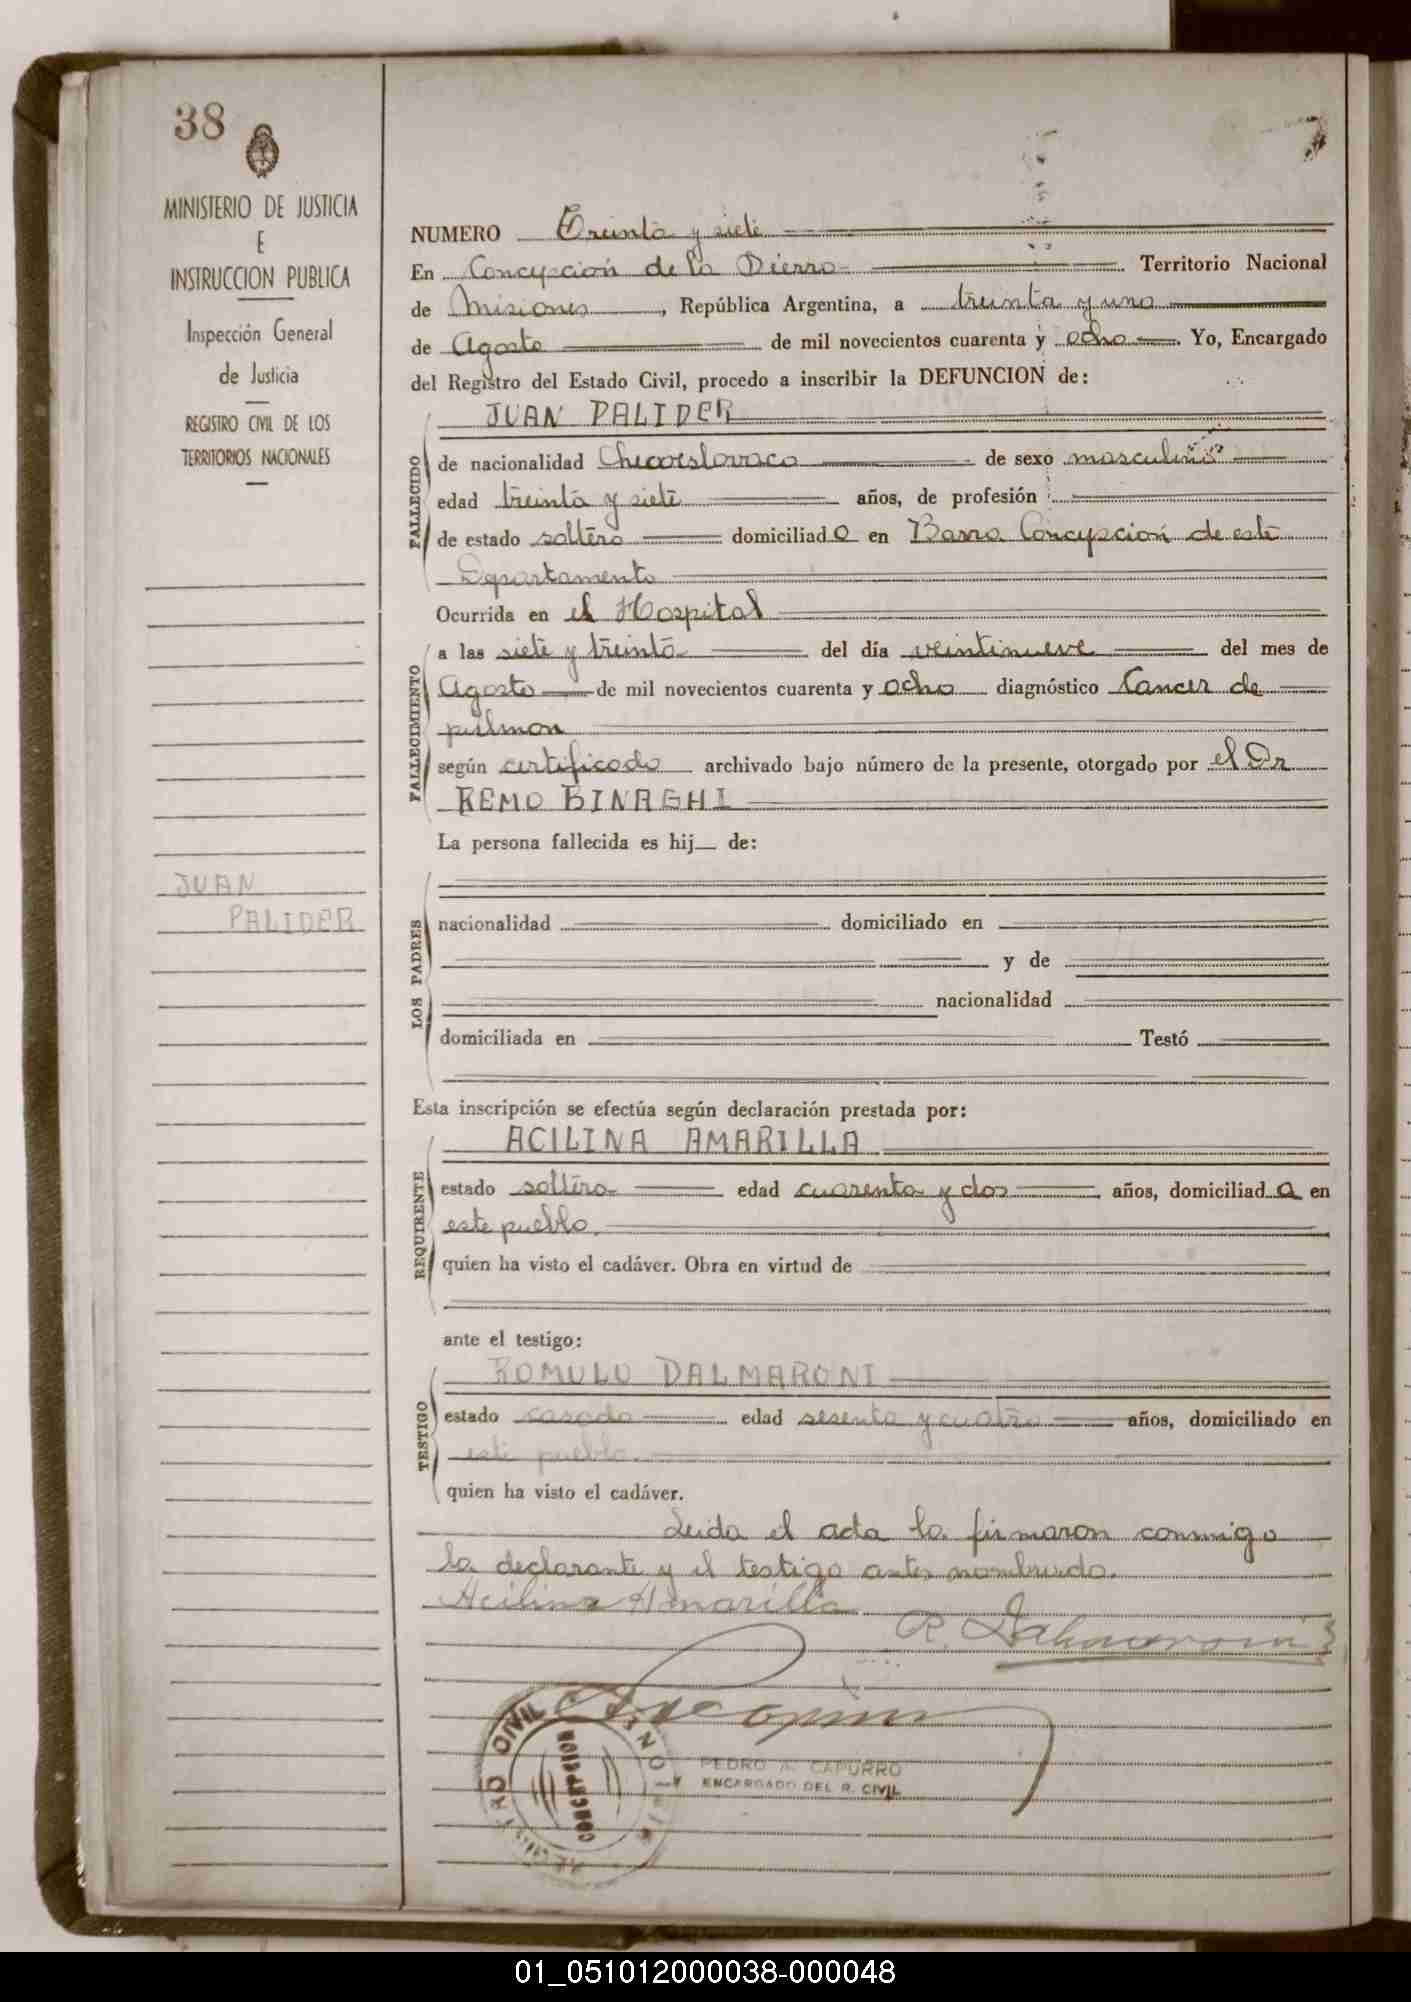 38
MINISTERIO DE JUSTICIA
E
INSTRUCCION PUBLICA
Inspección General
de Justicia
REGISTRO CIVIL DE LOS
TERRITORIOS NACIONALES
JUAN
PALIDER
NUMERO Treinta y siete
En Concepcion de la Sierra Territorio Nacional
de Misiones, República Argentina, a treinta y uno
de Agosto de mil novecientos cuarenta y ocho. Yo, Encargado
del Registro del Estado Civil, procedo a inscribir la DEFUNCION de:
JUAN PALIDER
FALLECIDO
de nacionalidad Checoeslovaco de sexo masculino
edad treinta y siete años, de profesión
de estado soltero domiciliado en Barra Concepción de este
Departamento
Ocurrida en el Hospital
FALLECIMIENTO
a las siete y treinta del día veintinueve del mes de
Agosto de mil novecientos cuarenta y ocho diagnóstico Cancer de
pulmon
según certificado archivado bajo número de la presente, otorgado por el Dr
REMO BINAGHI
La persona fallecida es hij de:
LOS PADRES
nacionalidad domiciliado en
y de
nacionalidad
domiciliada en Testó
Esta inscripción se efectúa según declaración prestada por:
REQUIRENTE
ACILINA AMARILLA
estado soltera edad cuarenta y dos años, domiciliada en
este pueblo.
quien ha visto el cadáver. Obra en virtud de
ante el testigo:
TESTIGO
ROMULO DALMARONI
estado casado edad sesenta y cuatro años, domiciliado en
este pueblo.
quien ha visto el cadáver.
Leida el acta la firmaron conmigo
la declarante y el testigo antes nombrado.
Acilina Amarilla
R. Dalmaroni
REGISTRO CIVIL
CONCEPCION
MISIONES
PEDRO A. CAPURRO
ENCARGADO DEL R. CIVIL
01_051012000038-000048